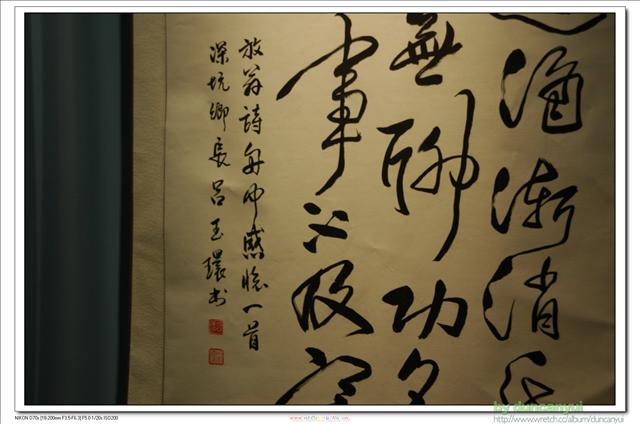 酒漸消
無聊功名
事不及
放翁詩舟中感懷一首
深坑鄉長呂玉環書
by duncanyui
NIKON D70s [18-200mm F3.5-F6.3] F5.0 1/20s ISO200
http://www.wretch.cc/album/duncanyui